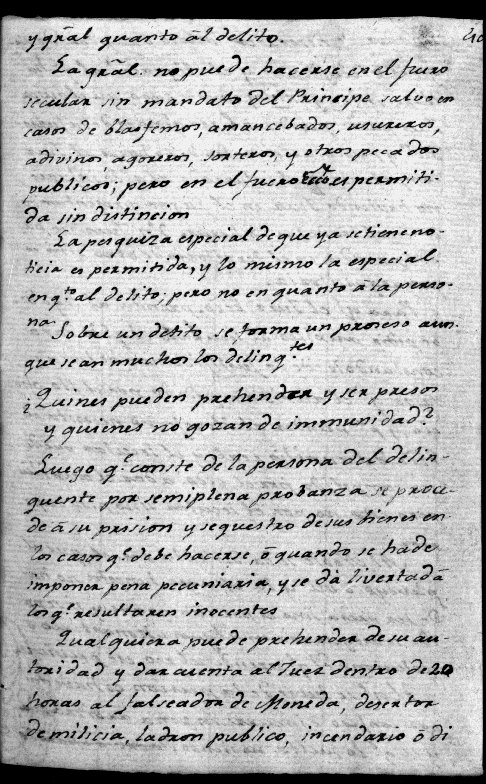 y grãl quanto ãl delito.
La grãl. no puede hacerse en el fuero
secular sin mandato del Principe salvo en
casos de blasfemos, amancebados, usureros,
adivinos, agoreros, sorteros, y otros pecados
publicos; pero en el fuero ecco es permiti-
da sin distincion
La pesquiza especial de que ya se tiene no-
ticia es permitida, y lo mismo la especial
en q.to al delito; pero no en quanto ã la perso-
na.
Sobre un delito se forma un proseso aun-
que sean muchos los delinq.tes
¿Quines pueden prehender y ser presos
y quienes no gozan de immunidad?
Luego q.e conste de la persona del delin-
quente por semiplena probanza se proce-
de ã su prision y sequestro de sus bienes en
los casos q.e debe hacerse, õ quando se ha de
imponer pena pecuniaria, y se dã livertad ã
los q.e resultaren inocentes
Qualquiera puede prehender de su au-
toridad y dar cuenta al Juez dentro de 20
horas al falseador de Moneda, desertor
de milicia, ladron publico, incendario õ di